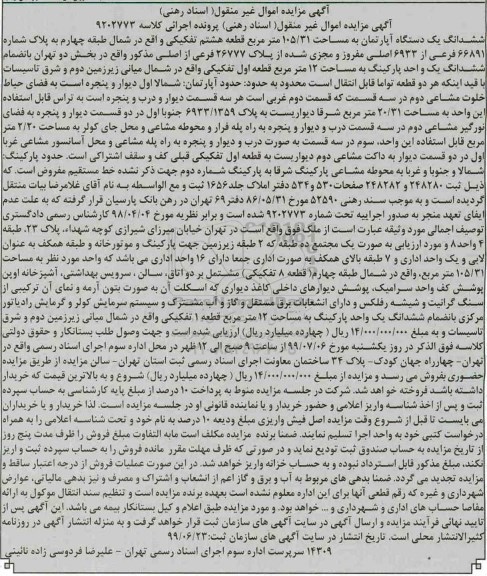 آگهی مزایده اموال غیر منقول( اسناد رهنی)
آگهی مزایده اموال غیر منقول( اسناد رهنی) پرونده اجرائی کلاسه ۹۲۰۲۷۷۳
ششدانگ یک دستگاه آپارتمان به مساحت ۱۰۵/۳۱ متر مربع قطعه هشتم تفکیکی و اقع در شمال طبقه چهارم به پلاک شماره
۶۶۸۹۱ فرعی از ۶۹۳۳ اصلی مفروز و مجزی شده از پلاک ۲۶۷۷۷ فرعی از اصلی مذکور واقع در بخش دو تهران بانضمام
ششدانگ یک و احد پارکینگ به مساحت ۱۲ متر مربع قطعه اول تفکیکی واقع در شمال میانی زیرزمین دوم و شرق تاسیسات
با قید اینکه هر دو قطعه تواما قابل انتقال است محدود به حدود: حدود آپارتمان: شمالا اول دیوار و پنجره است به فضای حیاط
خلوت مشاعی دوم در سه قسمت که قسمت دوم غربی است هر سه قسمت دیوار و درب و پنجره است به تراس قابل استفاده
این واحد به مساحت ۲۰/۳۱ متر مربع شرقا دیواریست به پلاک ۶۹۳۳/۱۳۵۹ جنوبا اول در دو قسمت دیوار و پنجره به فضای
نورگیر مشاعی دوم در سه قسمت درب و دیوار و پنجره به راه پله فرار و محوطه مشاعی و محل جای کولر به مساحت ۲/۲۰ متر
مربع قابل استفاده این واحد، سوم در سه قسمت به صورت درب و دیوار و پنجره به راه پله مشاعی و محل آسانسور مشاعی غربا
اول در دو قسمت دیوار به داکت مشاعی دوم دیواریست به قطعه اول تفکیکی قبلی کف و سقف اشتراکی است. حدود پارکینگ:
شمالا و جنوبا و غربا به محوطه مشاعی پارکینگ شرقا به پارکینگ شماره دوم جهت ذکر نشده خط مستقیم مفروض است. که
ذیل ثبت ۲۴۸۲۸۰ و ۲۴۸۲۸۲ صفحات ۵۳۰ و ۵۳۴ دفتر املاک جلد ۱۶۵۶ ثبت و مع الواسطه به نام آقای غلامرضا بیات منتقل
گردیده است و به موجب سند رهنی ۵۲۵۹۰ مورخ ۸۶/۰۵/۳۱ دفتر ۶۹ تهران در رهن بانک پارسیان قرار گرفته که به علت عدم
ایفای تعهد منجر به صدور اجراییه تحت شماره ۹۲۰۲۷۷۳ شده است و برابر نظریه مورخ ۹۸/۰۴/۰۴ کارشناس رسمی دادگستری
توصیف اجمالی مورد وثیقه عبارت است از ملک فوق واقع است در تهران خیابان میرزای شیرازی کوچه شهداء، پلاک ۲۳، طبقه
۴ واحد ۸ و مورد ارزیابی به صورت یک مجتمع ده طبقه که ۲ طبقه زیرزمین جهت پارکینگ و موتورخانه و طبقه همکف به عنوان
لابی و یک واحد اداری و ۷ طبقه بالای همکف به صورت اداری جمعا دارای ۱۶ واحد اداری می باشد که واحد مورد نظر به مساحت
۱۰۵/۳۱ متر مربع، واقع در شمال طبقه چهارم/ قطعه ۸ تفکیکی/ مشتمل بر دو اتاق، سالن، سرویس بهداشتی، آشپزخانه اوپن
پوشش کف واحد سرامیک، پوشش دیوارهای داخلی کاغذ دیواری که اسکلت آن به صورت بتون آرمه و نمای آن ترکیبی از
سنگ گرانیت و شیشه رفلکس و دارای انشعابات برق مستقل و گاز و آب مشترک و سیستم سرمایش کولر و گرمایش رادیاتور
مرکزی بانضمام ششدانگ یک واحد پارکینگ به مساحت ۱۲ متر مربع قطعه ۱ تفکیکی واقع در شمال میانی زیرزمین دوم و شرق
تاسیسات و به مبلغ ۱۴/۰۰۰/۰۰۰/۰۰۰ ریال ( چهارده میلیارد ریال) ارزیابی شده است و جهت وصول طلب بستانکار و حقوق دولتی
کلاسه فوق الذکر در روز یکشنبه مورخ ۹۹/۰۷/۰۶ از ساعت ۹ صبح الی ۱۲ ظهر در محل اداره سوم اجرای اسناد رسمی واقع در
تهران- چهارراه جهان کودک- پلاک ۳۴ ساختمان معاونت اجرای اسناد رسمی ثبت استان تهران- سالن مزایده از طریق مزایده
حضوری بفروش می رسد و مزایده از مبلغ ۱۴/۰۰۰/۰۰۰/۰۰۰ ریال ( چهارده میلیارد ریال) شروع و به بالاترین قیمت که خریدار
داشته باشد فروخته خواهد شد. شرکت در جلسه مزایده منوط به پرداخت ۱۰ درصد از مبلغ پایه کارشناسی به حساب سپرده
ثبت و پس از اخذ شناسه واریز اعلامی و حضور خریدار و یا نماینده قانونی او در جلسه مزایده است. لذا خریدار و یا خریداران
می بایست تا قبل از شروع وقت مزایده اصل فیش واریزی مبلغ ودیعه ۱۰ درصد به نام خود و تحت شناسه اعلامی را به همراه
درخواست کتبی خود به واحد اجرا تسلیم نمایند. ضمنا برنده مزایده مکلف است مابه التفاوت مبلغ فروش را ظرف مدت پنج روز
از تاریخ مزایده به حساب صندوق ثبت تودیع نماید و در صورتی که ظرف مهلت مقرر مانده فروش را به حساب سپرده ثبت و اریز
نکند، مبلغ مذکور قابل استرداد نبوده و به حساب خزانه واریز خواهد شد. در این صورت عملیات فروش از درجه اعتبار ساقط و
مزایده تجدید می گردد. ضمنا بدهی های مربوط به آب و برق و گاز اعم از انشعاب و اشتراک و مصرف و نیز بدهی مالیاتی، عوارض
شهرداری و غیره که رقم قطعی آنها برای این اداره معلوم نشده است بعهده برنده مزایده است و تنظیم سند انتقال موکول به ارائه
مفاصا حساب های اداری و شهرداری و ... خواهد بود. و مورد مزایده طبق اعلام و کیل بستانکار بیمه می باشد. این آگهی پس از
تایید نهائی فرآیند مزایده و ارسال آگهی در سایت آگهی های سازمان ثبت قرار خواهد گرفت و به منزله انتشار آگهی در روزنامه
کثیرالانتشار محلی است. تاریخ انتشار در سایت آگهی های سازمان ثبت: ۹۹/۰۶/۲۳
۱۴۳۰۹ سرپرست اداره سوم اجرای اسناد رسمی تهران - علیرضا فردوسی زاده نائینی